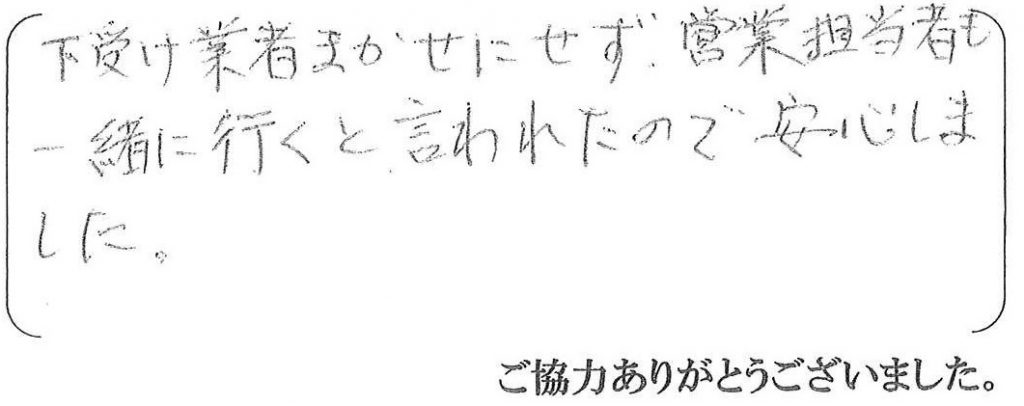 下受け業者まかせにせず、営業担当者も
一緒に行くと言われたので安心しま
した。
ご協力ありがとうございました。